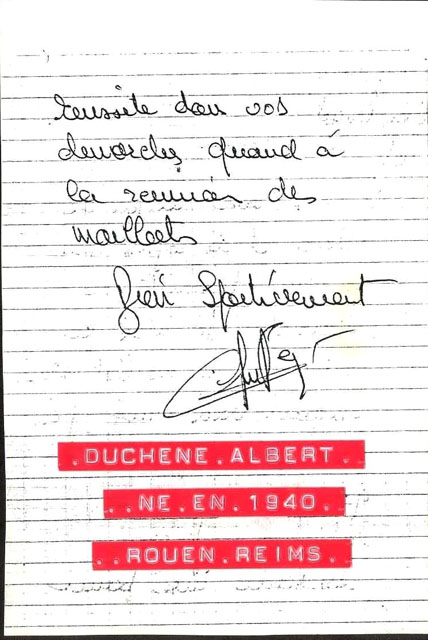 reussite dans vos
demarches quand à
la reunion des
maillots
Bien Sportivement
.DUCHENE.ALBERT.
..NE.EN.1940..
..ROUEN.REIMS.